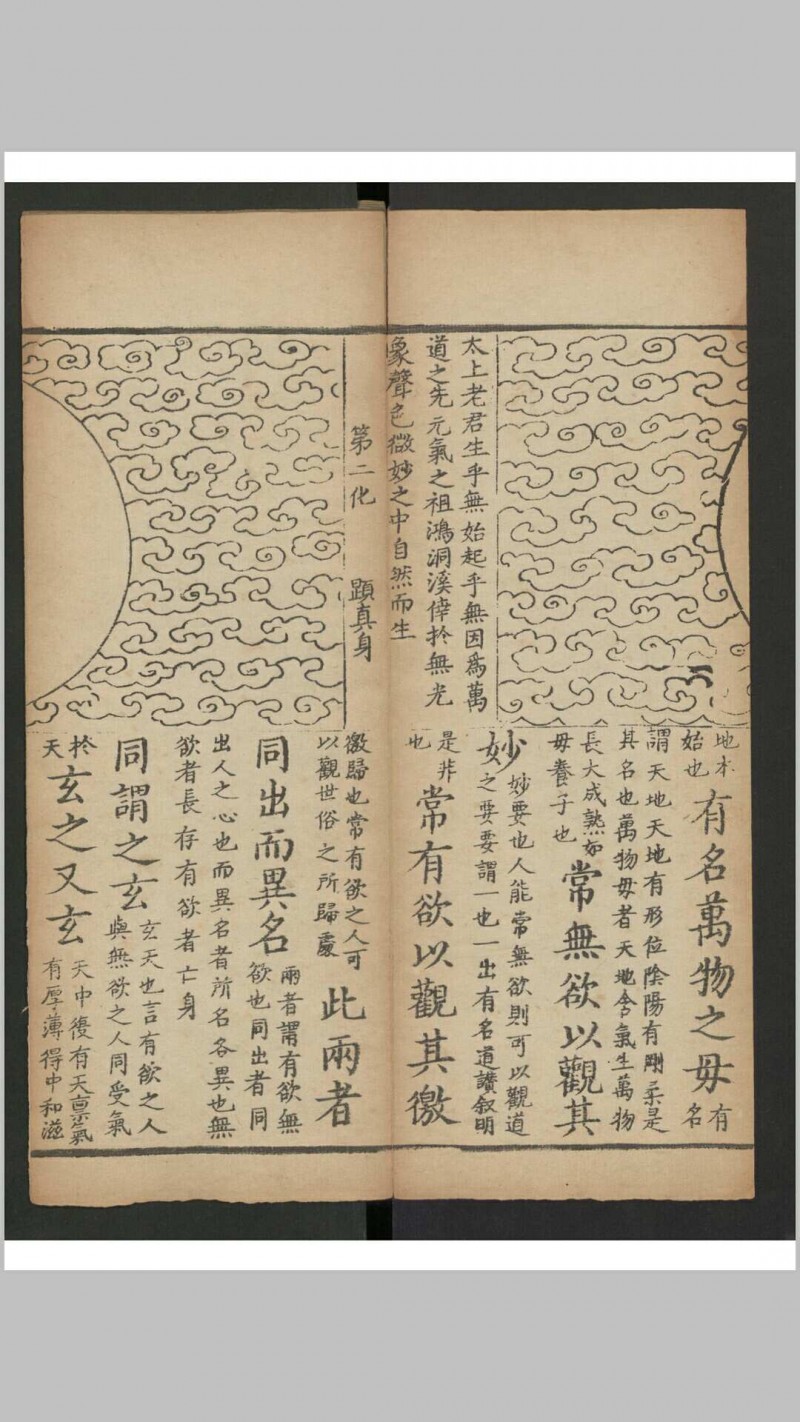 太上老君生乎無始起乎無因為萬
道之先元氣之祖鴻洞溪倖扵無光
象聲色微妙之中自然而生
第二化 顕真身
地本
始也
有名萬物之母
有
名
謂天地天地有形位陰陽有剛柔是
其名也萬物母者天地含氣生萬物
長大成熟如
母養子也
常無欲以觀其
妙
妙要也人能常無欲則可以觀道
之要要謂一也一出有名道讃叙明
是非
也
常有欲以觀其徼
徼歸也常有欲之人可
以觀世俗之所歸處
此兩者
同出而異名
兩者謂有欲無
欲也同出者同
出人之心也而異名者所名各異也無
欲者長存有欲者亡身
同謂之玄
玄天也言有欲之人
與無欲之人同受氣
扵
天
玄之又玄
天中復有天禀氣
有厚薄得中和滋